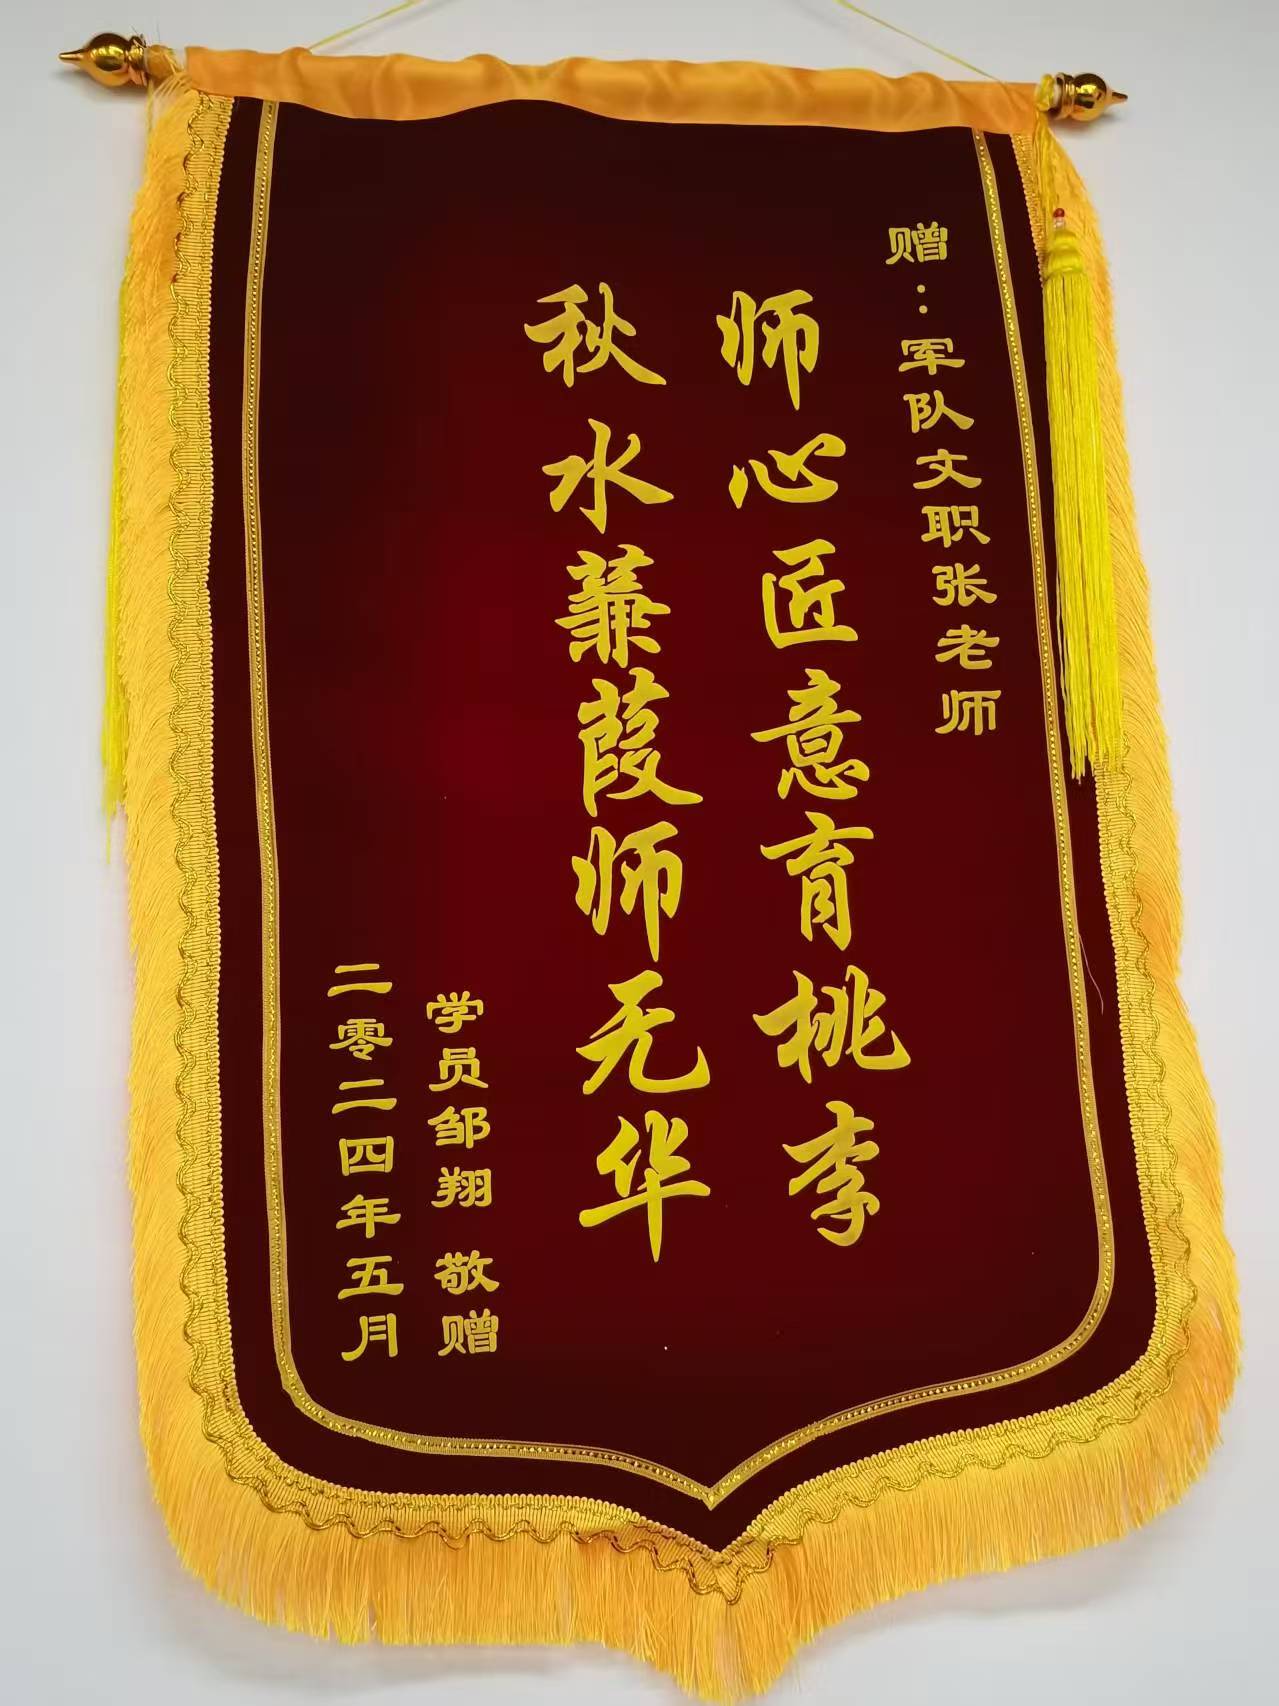 赠：军队文职张老师
师心匠意育桃李
秋水蒹葭师无华
学员邹翔 敬赠
二零二四年五月